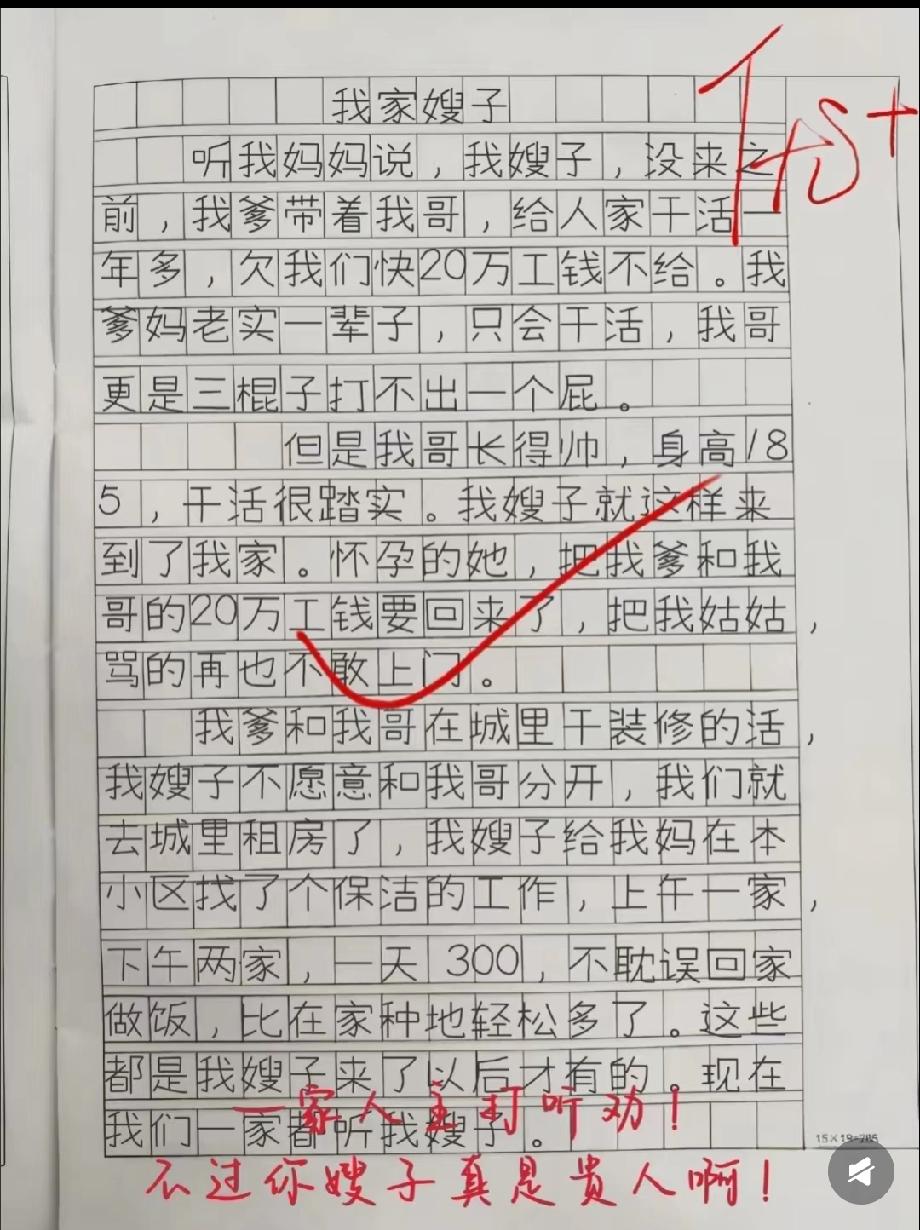 我家嫂子
听我妈妈说，我嫂子，没来之
前，我爹带着我哥，给人家干活一
年多，欠我们快20万工钱不给。我
爹妈老实一辈子，只会干活，我哥
更是三棍子打不出一个屁。
但是我哥长得帅，身高18
5，干活很踏实。我嫂子就这样来
到了我家。怀孕的她，把我爹和我
哥的20万工钱要回来了，把我姑姑，
骂的再也不敢上门。
我爹和我哥在城里干装修的活，
我嫂子不愿意和我哥分开，我们就
去城里租房了，我嫂子给我妈在本
小区找了个保洁的工作，上午一家，
下午两家，一天300，不耽误回家
做饭，比在家种地轻松多了。这些
都是我嫂子来了以后才有的。现在
我们一家都听我嫂子。
一家人主打听劝！
不过你嫂子真是贵人啊！